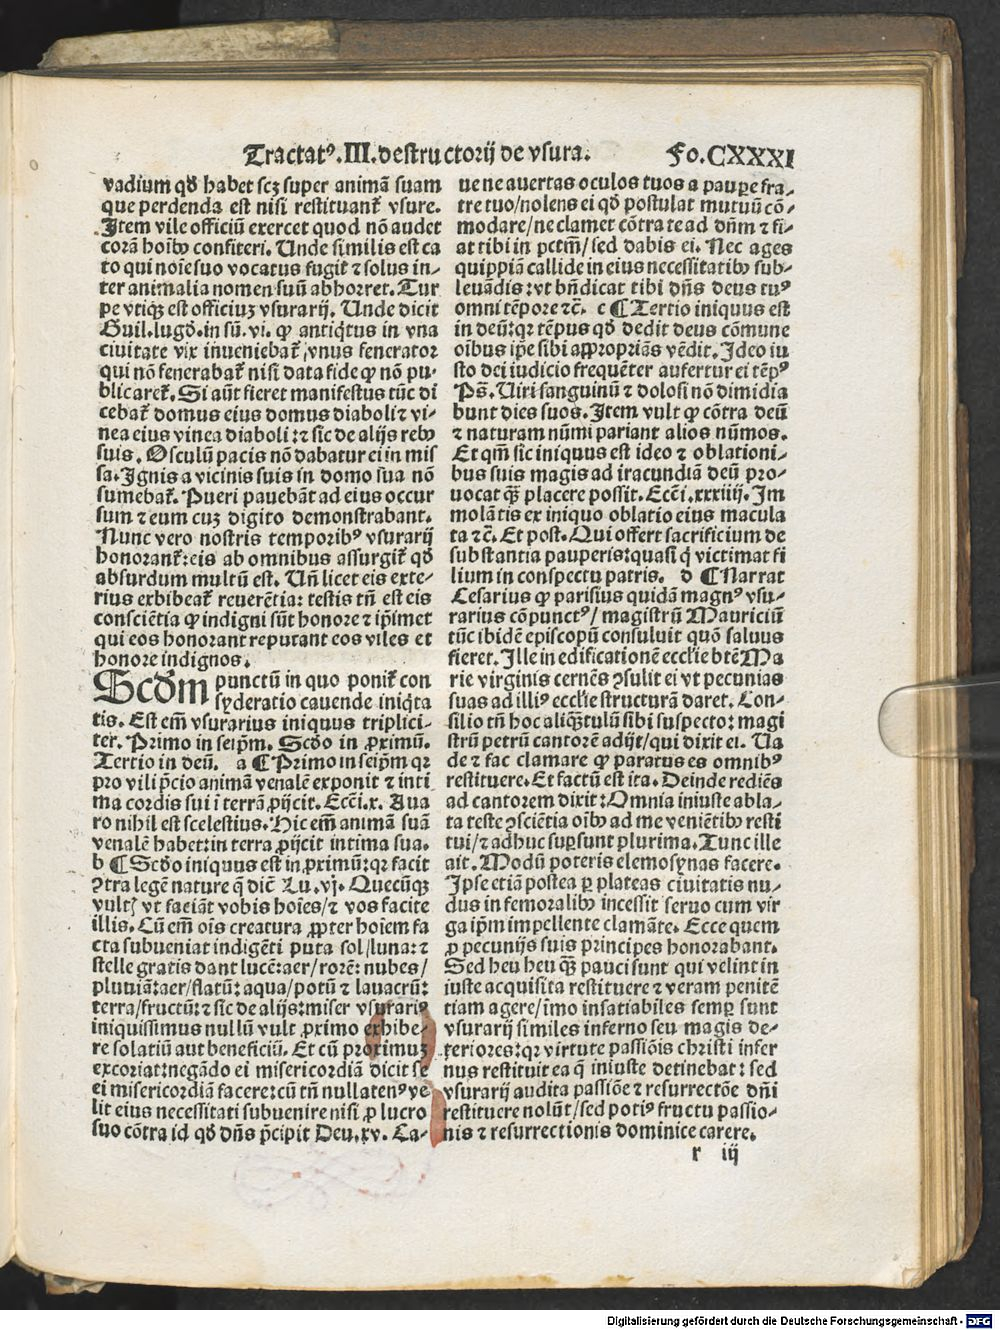 Tractatꝰ.III.destructorij de vsura. Fo.CXXXI
vadium qđ habet scꝫ super animã suam
que perdenda est nisi restituant᷑ vsure.
Item vile officiũ exercet quod nõ audet
corã hoĩbꝫ confiteri. Unde similis est ca
to qui noĩe suo vocatus fugit ⁊ solus in⸗
ter animalia nomen suũ abhorret. Tur
pe vtiqꝫ est officiuꝫ vsurarij. Unde dicit
Guil. lugđ. in sũ. vi. ꝙ antiq̃tus in vna
ciuitate vix inueniebat᷑ vnus fenerator
qui nõ fenerabat᷑ nisi data fide ꝙ nõ pu⸗
blicaret᷑. Si aũt fieret manifestus tũc di
cebat᷑ domus eius domus diaboli ⁊ vi⸗
nea eius vinea diaboli:⁊ sic de alijs rebꝫ
suis. Osculũ pacis nõ dabatur ei in mis
sa. Ignis a vicinis suis in domo sua nõ
sumebat᷑. Pueri pauebãt ad eius occur
sum ⁊ eum cuꝫ digito demonstrabant.
Nunc vero nostris temporibꝰ vsurarij
honorant᷑: eis ab omnibus assurgit᷑ qđ
absurdum multũ est. Uñ licet eis exte⸗
rius exhibeat᷑ reuerẽtia: testis tñ est eis
consciẽtia ꝙ indigni sũt honore ⁊ ip̃imet
qui eos honorant reputant eos viles et
honore indignos.
Scđm punctũ in quo ponit᷑ con
syderatio cauende iniq̃ta
tis. Est em̃ vsurarius iniquus triplici⸗
ter. Primo in seip̃m. Scđo in ꝓximũ.
Tertio in deũ. a ¶ Primo in seip̃m qꝛ
pro vili p̃cio animã venalẽ exponit ⁊ inti
ma cordis sui ĩ terrã ꝓijcit. Ecc̃i.x. Aua
ro nihil est scelestius. Hic em̃ animã suã
venalẽ habet: in terra ꝓijcit intima sua.
b ¶ Scđo iniquus est in ꝓximũ: qꝛ facit
ꝯtra legẽ nature q̃ dic̃ Lu.vj. Quecũqꝫ
vultꝭ vt faciãt vobis hoĩes/⁊ vos facite
illis. Cũ em̃ oĩs creatura ꝓpter hoĩem fa
cta subueniat indigẽti puta sol/luna:⁊
stelle gratis dant lucẽ: aer/rorẽ: nubes/
pluuiã: aer/flatũ: aqua/potũ ⁊ lauacrũ:
terra/fructũ:⁊ sic de alijs: miser vsurariꝰ
iniquissimus nullũ vult ꝓximo exhibe⸗
re solatiũ aut beneficiũ. Et cũ proximuꝫ
excoriat: negãdo ei misericordiã dicit se
ei misericordiã facere: cũ tñ nullatenꝰ ve
lit eius necessitati subuenire nisi ꝓ lucro
suo cõtra id qđ dñs p̃cipit Deu.xv. Ca⸗
ue ne auertas oculos tuos a paupere fra⸗
tre tuo/nolens ei qđ postulat mutuũ cõ⸗
modare/ne clamet cõtra te ad dñm ⁊ fi⸗
at tibi in pctm̃/sed dabis ei. Nec ages
quippiã callide in eius necessitatibꝫ sub⸗
leuãdis: vt bñdicat tibi dñs deus tuꝰ
omni tẽpore ⁊c̃. c ¶ Tertio iniquus est
in deũ: qꝛ tẽpus qđ dedit deus cõmune
oĩbus ip̃e sibi appropriãs vẽdit. Ideo iu
sto dei iudicio frequẽter aufertur ei tẽpꝰ
Ps̃. Uiri sanguinũ ⁊ dolosi nõ dimidia
bunt dies suos. Item vult ꝙ cõtra deũ
⁊ naturam nũmi pariant alios nũmos.
Et qm̃ sic iniquus est ideo ⁊ oblationi⸗
bus suis magis ad iracundiã deũ pro⸗
uocat q̃ꝫ placere possit. Ecc̃i.xxxiiij. Im
molãtis ex iniquo oblatio eius macula
ta ⁊c̃. Et post. Qui offert sacrificium de
substantia pauperis: quasi q̃ victimat fi
lium in conspectu patris. d ¶ Narrat
Cesarius ꝙ parisius quidã magnꝰ vsu⸗
rarius cõpunctꝰ/ magistrũ Mauriciũ
tũc ibidẽ episcopũ consuluit quõ saluus
fieret. Ille in edificationẽ eccl̃ie btẽ Ma
rie virginis cernẽs ꝯsulit ei vt pecunias
suas ad illiꝰ eccl̃ie structurã daret. Con⸗
silio tñ hoc aliq̃ꝫtulũ sibi suspecto: magi
strũ petrũ cantorẽ adijt/qui dixit ei. Ua
de ⁊ fac clamare ꝙ paratus es omnibꝰ
restituere. Et factũ est ita. Deinde rediẽs
ad cantorem dixit: Omnia iniuste abla⸗
ta teste ꝯsciẽtia oĩbꝫ ad me veniẽtibꝫ resti
tui/⁊ adhuc suꝑsunt plurima. Tunc ille
ait. Modũ poteris elemosynas facere.
Ipse etiã postea ꝑ plateas ciuitatis nu⸗
dus in femoralibꝫ incessit seruo cum vir
ga ip̃m impellente clamãte. Ecce quem
ꝓ pecunijs suis principes honorabant.
Sed heu heu q̃ꝫ pauci sunt qui velint in
iuste acquisita restituere ⁊ veram penitẽ
tiam agere/ĩmo insatiabiles semꝑ sunt
vsurarij similes inferno seu magis de⸗
teriores: qꝛ virtute passiõis christi infer
nus restituit ea q̃ iniuste detinebat: sed
vsurarij audita passiõe ⁊ resurrectõe dñi
restituere nolũt/sed potiꝰ fructu passio⸗
nis ⁊ resurrectionis dominice carere.
r iij
Digitalisierung gefördert durch die Deutsche Forschungsgemeinschaft - DFG